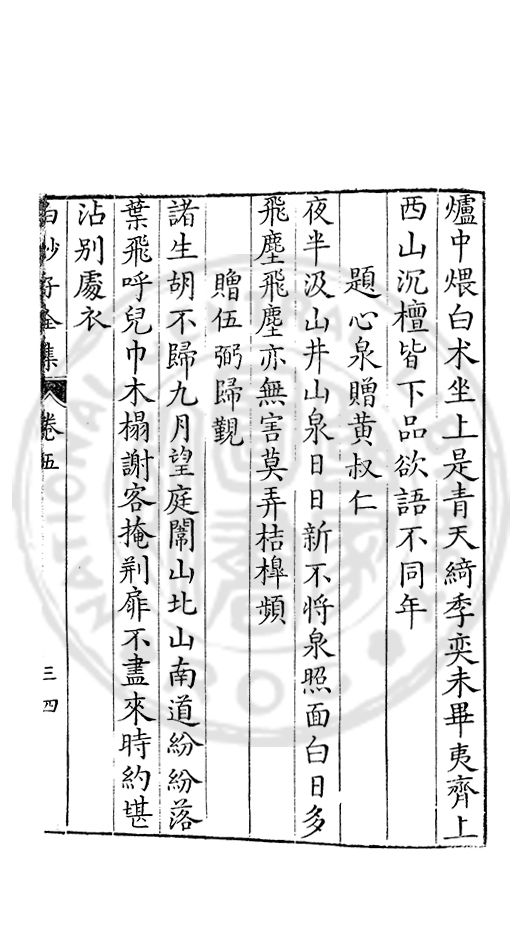 爐中煨白朮坐上是青天綺季奕未畢夷齊上
西山沉檀皆下品欲語不同年
題心泉贈黄叔仁
夜半汲山井山泉日日新不將泉照面白日多
飛塵飛塵亦無害莫弄桔槹頻
贈伍弼歸覲
諸生胡不歸九月望庭闈山北山南道紛紛落
葉飛呼兒巾木榻謝客掩荆扉不盡來時約堪
沾别處衣
白沙子全集
卷五
三四